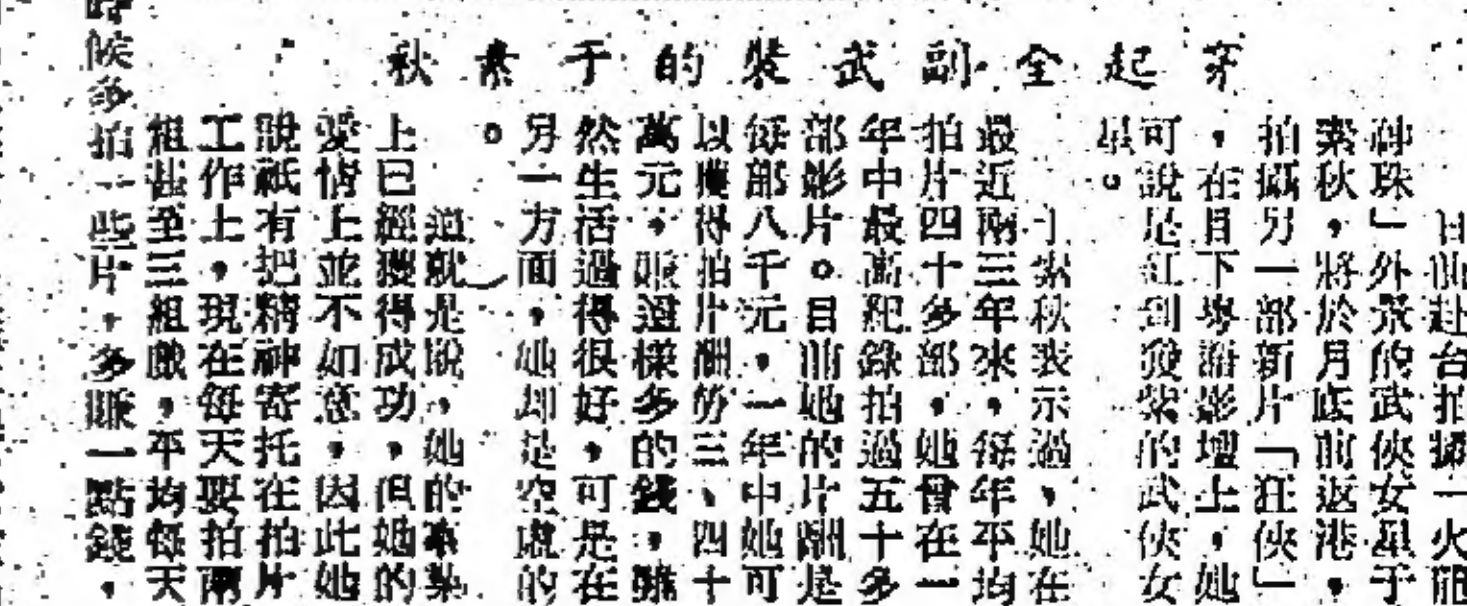 穿起全副武裝的于素秋
日前赴台拍攝「火龍
神珠」外景的武俠女星于
素秋，將於月底前返港，
拍攝另一部新片「狂俠」
，在目下粵語影壇上，她
可說是紅到發紫的武俠女
星。
于素秋表示過，她在
最近兩三年來，每年平均
拍片四十多部，她曾在一
年中最高紀錄拍過五十多
部影片。目前她的片酬是
每部八千元，一年中她可
以獲得拍片酬勞三、四十
萬元，賺這樣多的錢，雖
然生活過得很好，可是在
另一方面，她却是空虛的
。
這就是說，她的事業
上已經獲得成功，但她的
愛情上並不如意，因此她
說祇有把精神寄托在拍片
工作上，現在每天要拍兩
組甚至三組戲，平均每天
時候多拍一些片，多賺一點錢，